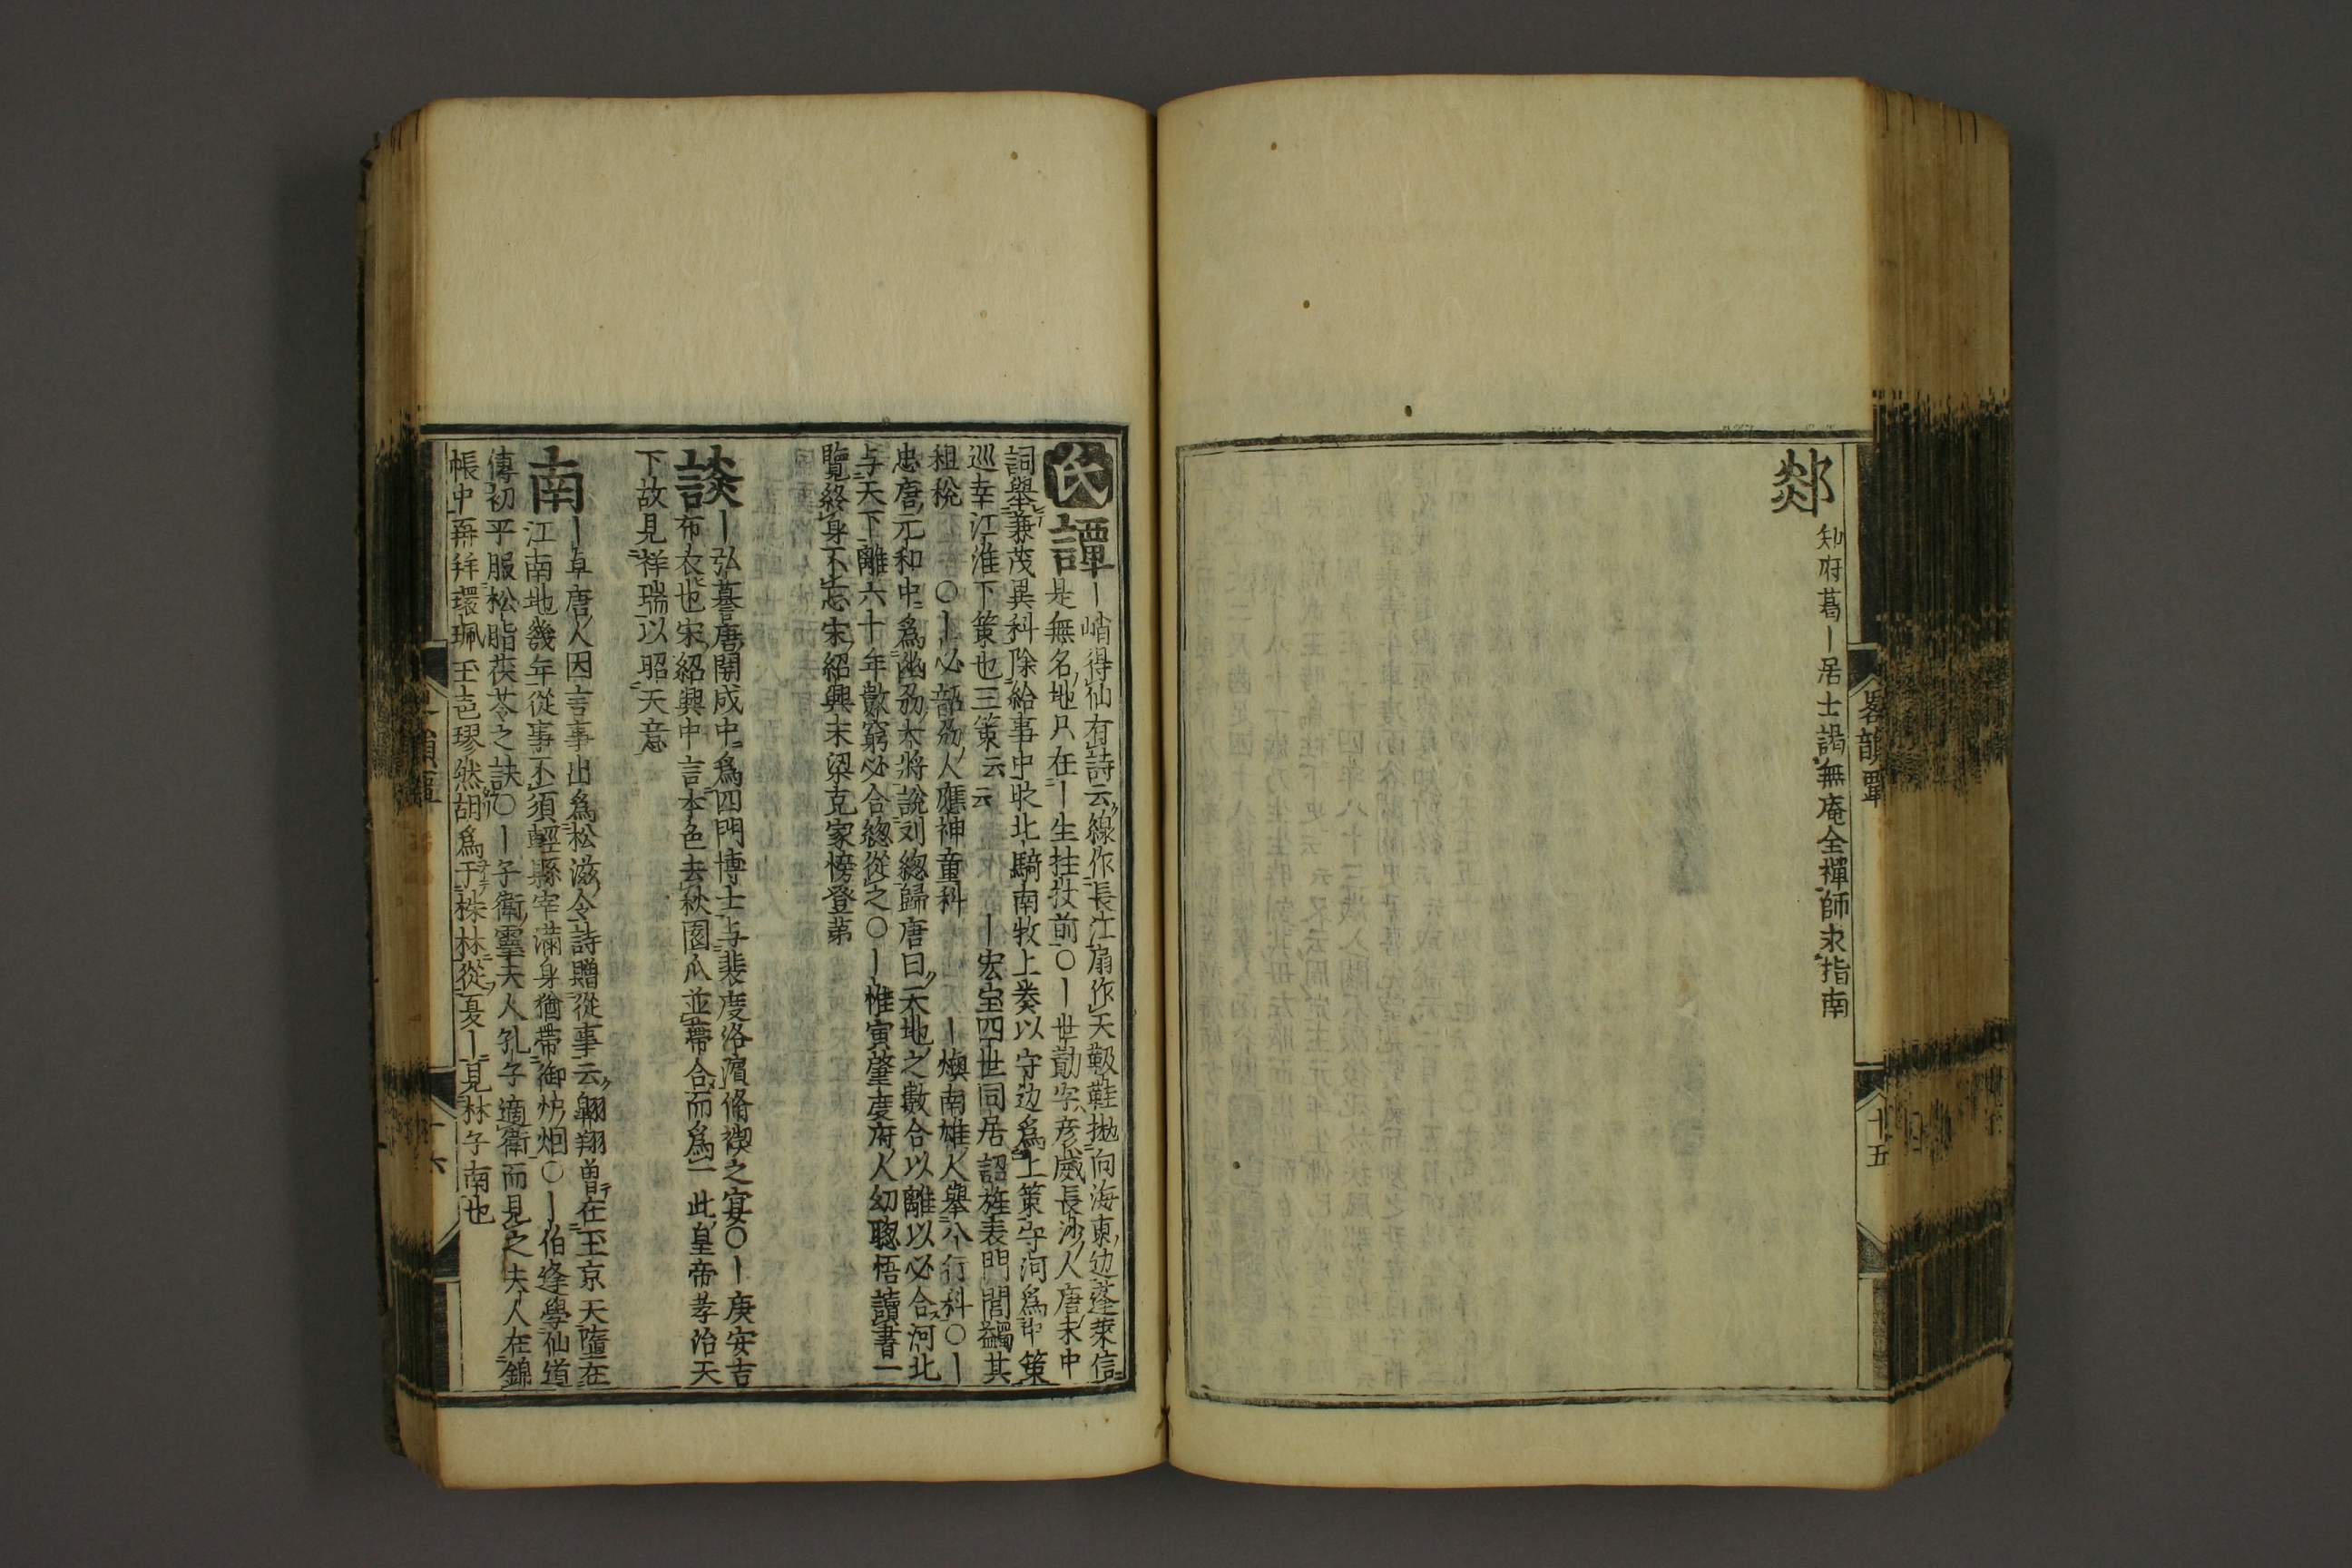 郯
知府葛｜居士謁無庵全禪師求指南
畧韻覃
十五
氏
譚
｜峭得仙有詩云線作長江扇作天靸鞋抛向海東边蓬萊信
是無名地只在｜生拄杖前○｜世勣字彦威長沙人唐末中
詞舉兼茂異科除給事中收北騎南牧上奏以守边爲上策守河爲中策
巡幸江淮下策也三策云云
｜宏宝四世同居詔旌表門閭蠲其
租税
○｜必韶刕人應神童科
｜煥南雄人舉八行科○｜
忠唐元和中爲幽刕大將說刘總歸唐曰天地之數合以離以必合河北
与天下離六十年數窮必合總從之○｜惟寅肇慶府人幼聦悟讀書一
覽終身不忘宋紹興末梁克家榜登苐
談
｜弘謩唐開成中爲四門博士与裴度洛濵脩禊之宴○｜庚安吉
布衣也宋紹興中言本色去秋園瓜並蔕合而爲一此皇帝孝治天
下故見祥瑞以昭天意
南
｜卓唐人因言事出爲松滋令詩贈從事云翺翔曽在玉京天墮在
江南地幾年從事不須輕縣宰滿身猶帶御炉烟○｜伯逢學仙道
傳初平服松脂茯苓之訣○｜子衛靈夫人孔子適衛而見之夫人在錦
帳中再拜環珮玉色璆然胡爲于株林從夏｜見林子南也
十六